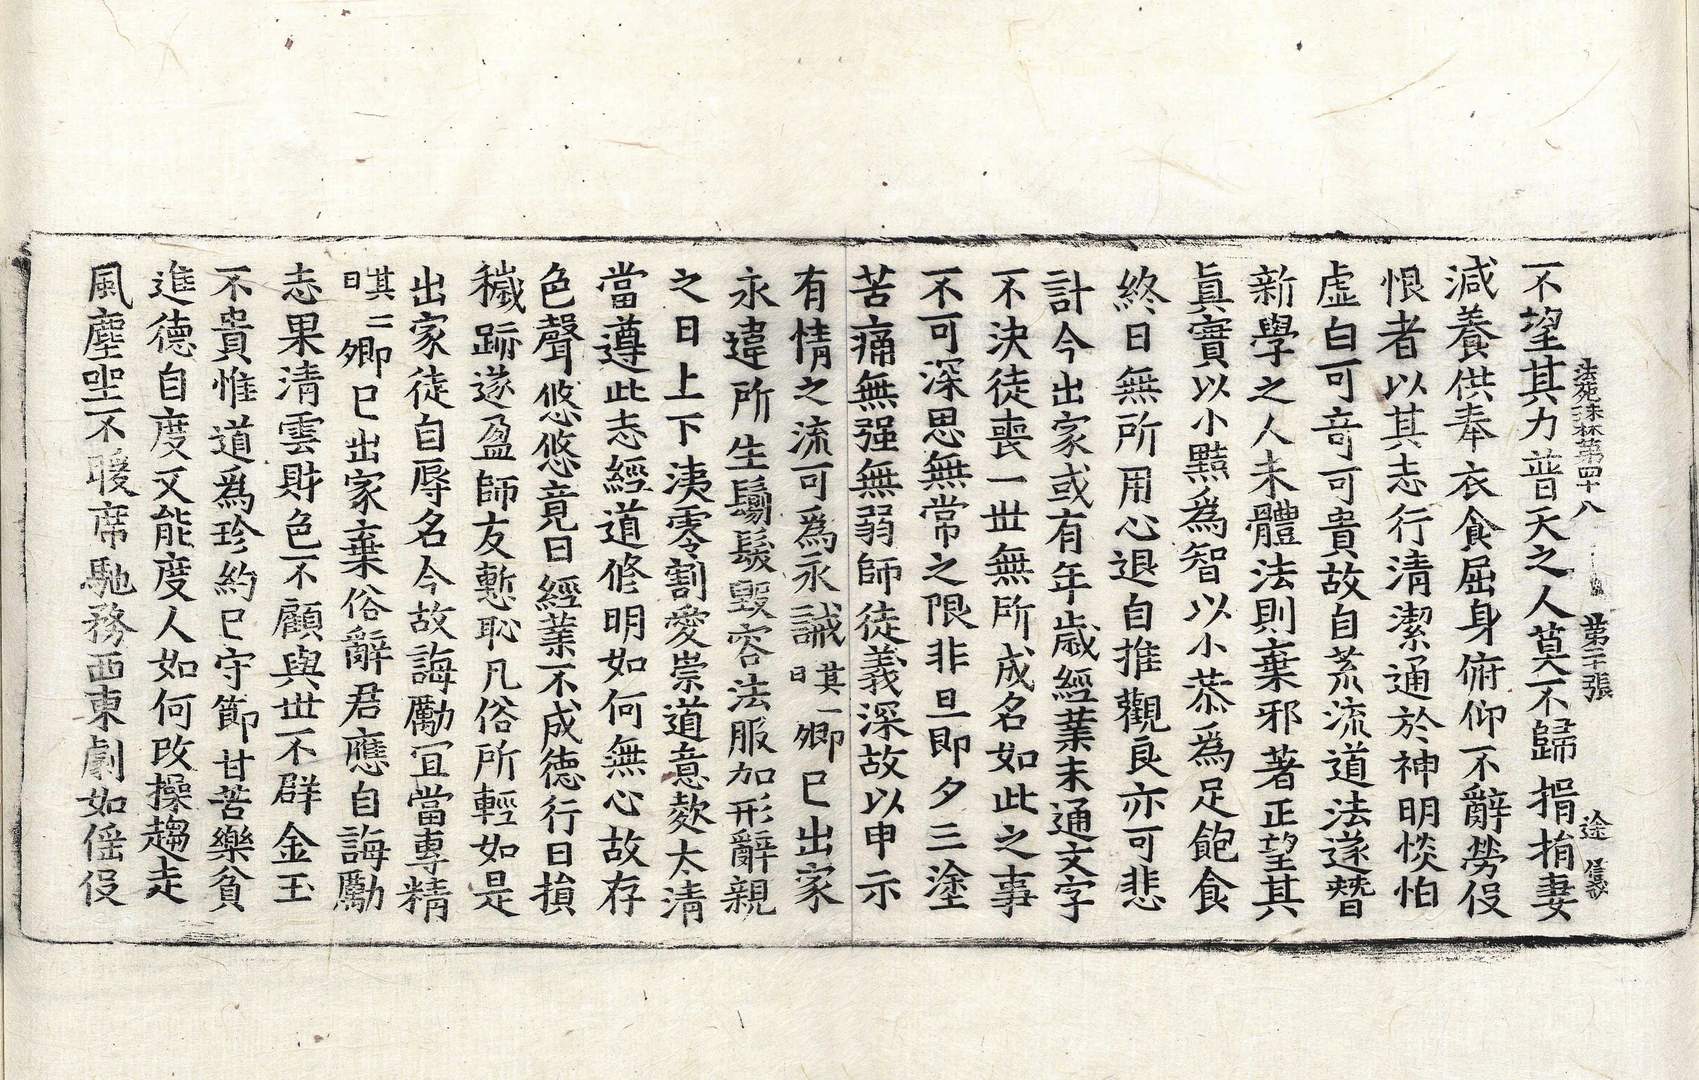 法苑珠林第四十八 第二十張 途 信義
不望其力普天之人莫不歸捐捐妻
減養供奉衣食屈身俯仰不辭勞伇
恨者以其志行清潔通於神明惔怕
虛白可竒可貴故自荒流道法遂替
新學之人未體法則棄邪著正望其
眞實以小黠爲智以小恭爲足飽食
終日無所用心退自推觀良亦可悲
計今出家或有年歲經業未通文字
不決徒喪一世無所成名如此之事
不可深思無常之限非旦即夕三塗
苦痛無强無弱師徒義深故以申示
有情之流可爲永誡其一曰卿已出家
永違所生鬀髮毀容法服加形辭親
之日上下洟零割愛崇道意欻太清
當遵此志經道修明如何無心故存
色聲悠悠竟日經業不成德行日損
穢跡遂盈師友慙恥凡俗所輕如是
出家徒自辱名今故誨勵冝當專精
其二曰卿已出家棄俗辭君應自誨勵
志果清雲財色不顧與世不群金玉
不貴惟道爲珍約已守節甘苦樂貧
進德自度又能度人如何改操趨走
風塵坐不暖席馳務西東劇如傜伇